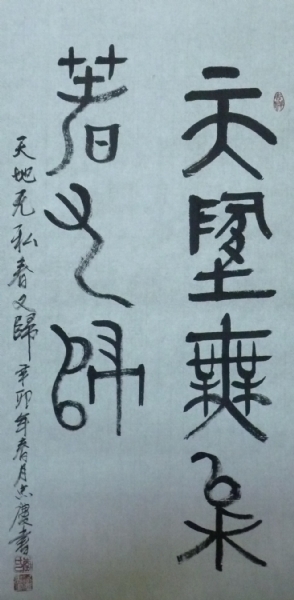 天墬無厶
春又歸
天地无私春又歸 辛卯年春月忠慶書